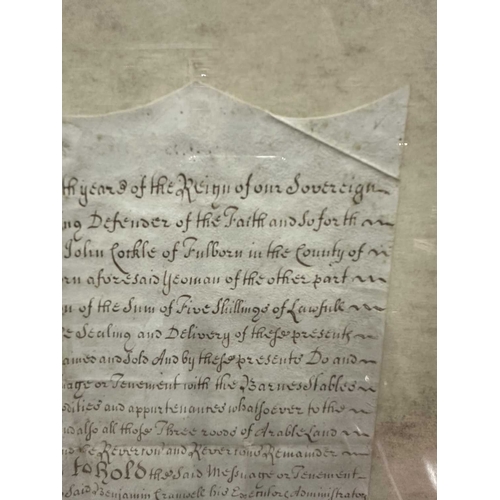 th yeard of the Reign of our Sovereign
ng Defender of the Faith and So forth
John Cockle of Fulborn in the County of
rn aforesaid Yeoman of the other part
on of the Sum of Five Shillings of Lawfull
e Sealing and Delivery of these presents
ained and Sold And by these presents Do and
uage or Tenement with the Barnes Stables
odities and appurtenances whatsoever to the
nd also all those Three roods of Arable Land
and the Reverton and Revertons Remainder
to hold the said Messuage or Tenement
Said Benjamin Cranwell his Executors Administrators